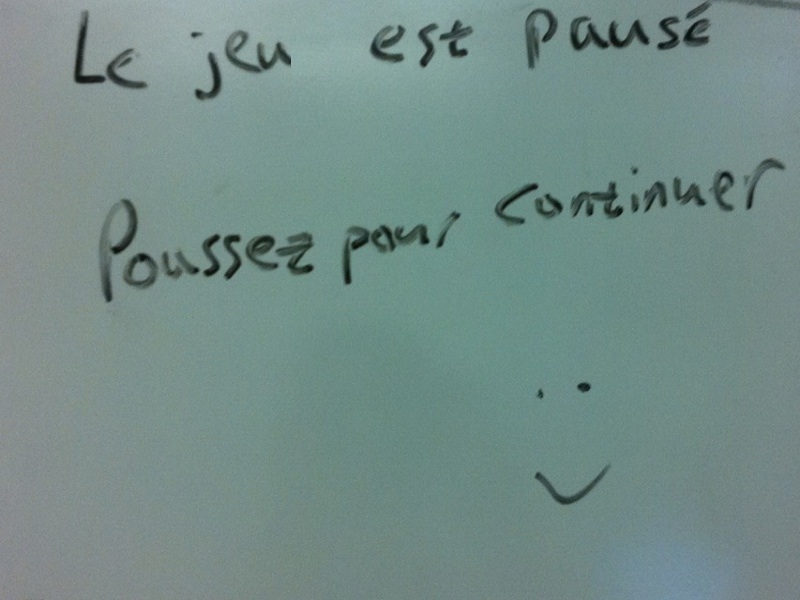 Le jeu est pausé
Poussez pour continuer